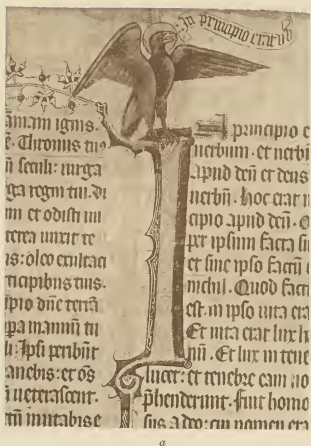 In principio erat ub
amam ignis.
e. Thronus tuꝰ
ñ seculi: uirga
ga regni tui. Di
m et odisti ini
terea unxit te
is: oleo exultaci
ticipibus tuis.
ipio dñe terrã
pa manuũ tu
li: Ipsi peribũt
anebis: et oẽs
i ueterascent.
tũ mutabis e
principio e
uerbum. et uerbũ
Apud deũ et deus
uerbũ. hoc erat i
cipio apud deũ. O
per ipsum facta su
et sine ipso factũ e
nichil. Quod fact
est. in ipso uita era
Et uita erat lux h
nũ. Et lux in tene
lucet: et tenebre eam no
p̃henderunt. Fuit homo
sus a deo: cui nomen era
a